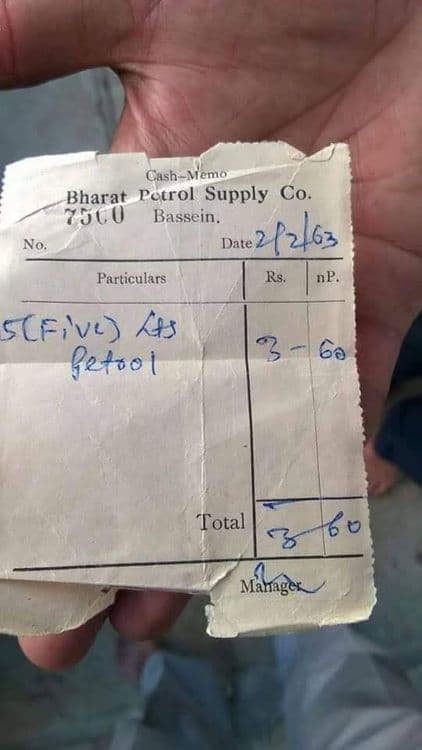 Cash-Memo
Bharat Petrol Supply Co.
7500 Bassein.
No. Date 2/2/63
Particulars Rs. nP.
5(Five) Lts 3 - 60
Petrol
Total 3 60
Manager